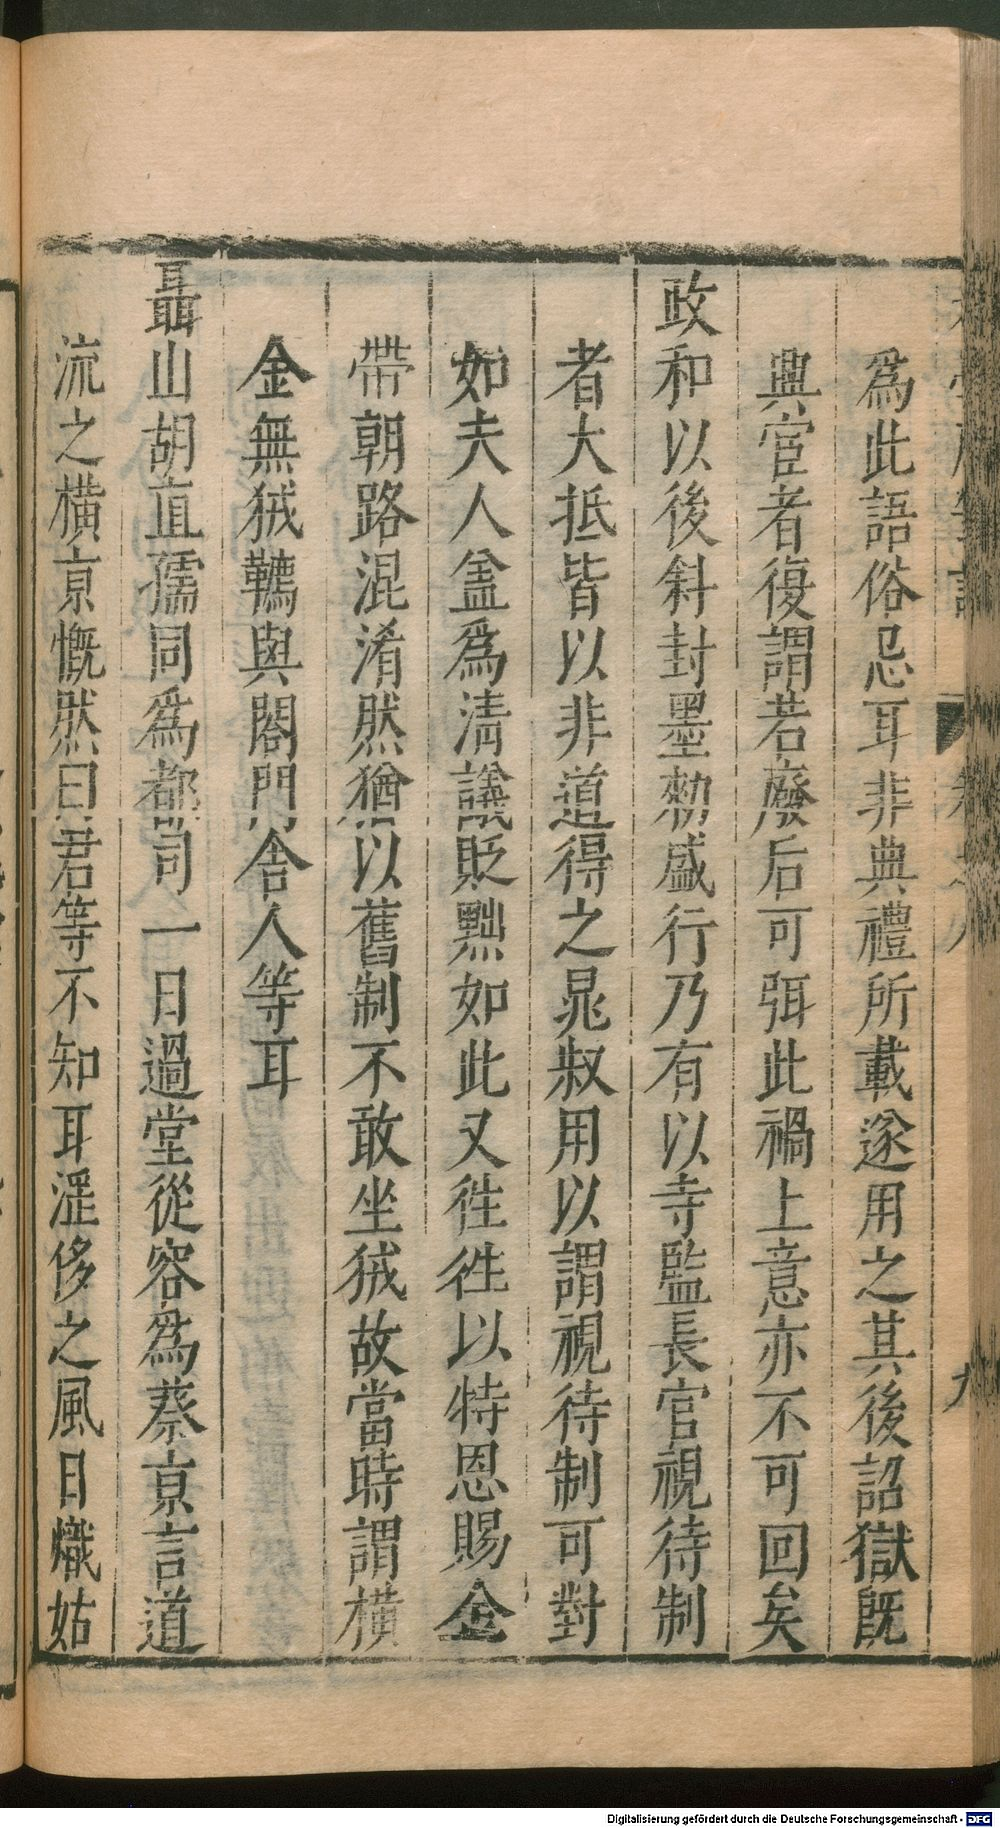 爲此語俗忌耳非典禮所載遂用之其後詔獄旣
興宦者復謂若廢后可弭此禍上意亦不可回矣
政和以後斜封墨勑盛行乃有以寺監長官視待制
者大抵皆以非道得之晁叔用以謂視待制可對
如夫人盖爲淸議貶黜如此又徃徃以特恩賜金
帶朝路混淆然猶以舊制不敢坐狨故當時謂橫
金無狨韉與閤門舍人等耳
聶山胡直孺同爲都司一日過堂從容爲蔡亰言道
流之橫亰慨然曰君等不知耳淫侈之風日熾姑
Digitalisierung gefördert durch die Deutsche Forschungsgemeinschaft - DFG